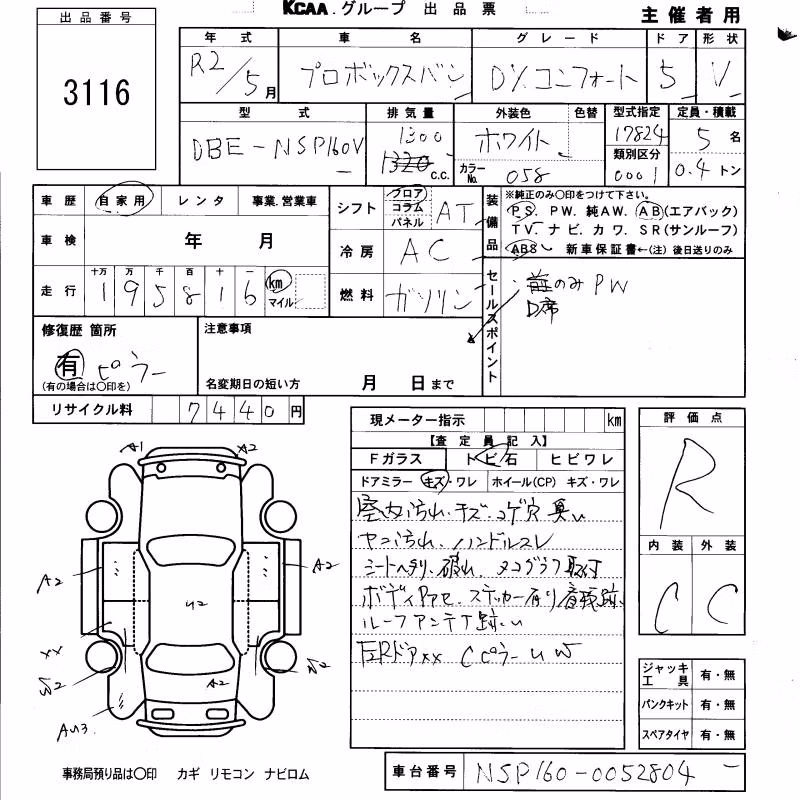 KCAA.グループ 出品票
主催者用
出品番号
3116
年式 車名 グレード ドア 形状
R2/5月 プロボックスバン DX.コンフォート 5 V
型式 排気量 外装色 色替 型式指定 定員・積載
DBE-NSP160V 1300 c.c. ホワイト 17824 5名
カラーNo. 058 類別区分 0001 0.4トン
車歴 自家用 レンタ 事業.営業車
シフト フロア コラム パネル AT
装備品 ※純正のみ〇印をつけて下さい。
PS. PW. 純AW. AB(エアバック)
TV. ナビ. カワ. SR(サンルーフ)
ABS 新車保証書←(注)後日送りのみ
車検 年 月
冷房 AC
走行 十万 万 千 百 十 一 km マイル
195816
燃料 ガソリン
セールスポイント
のみPW
D席
修復歴 箇所
有 ピラー
(有の場合は〇印を)
注意事項
名変期日の短い方 月 日まで
リサイクル料 7440円
現メーター指示 km
【査定員記入】
Fガラス トビ石 ヒビワレ
ドアミラー キズ・ワレ ホイール(CP) キズ・ワレ
室内汚れ.キズ.コゲ穴 臭い
ヤニ汚れ.ハンドルスレ
シートヘタリ.破れ.タコグラフ取付
ボディアセ.ステッカー有り看板跡.
ルーフアンテナ跡.
左RドアXX CピラーUW
評価点
R
内装 外装
C C
ジャッキ工具 有・無
パンクキット 有・無
スペアタイヤ 有・無
A1 A2
A2 A2
U2
XX
W2 W2
A2
AU3.
事務局預り品は〇印 カギ リモコン ナビロム
車台番号 NSP160-0052804